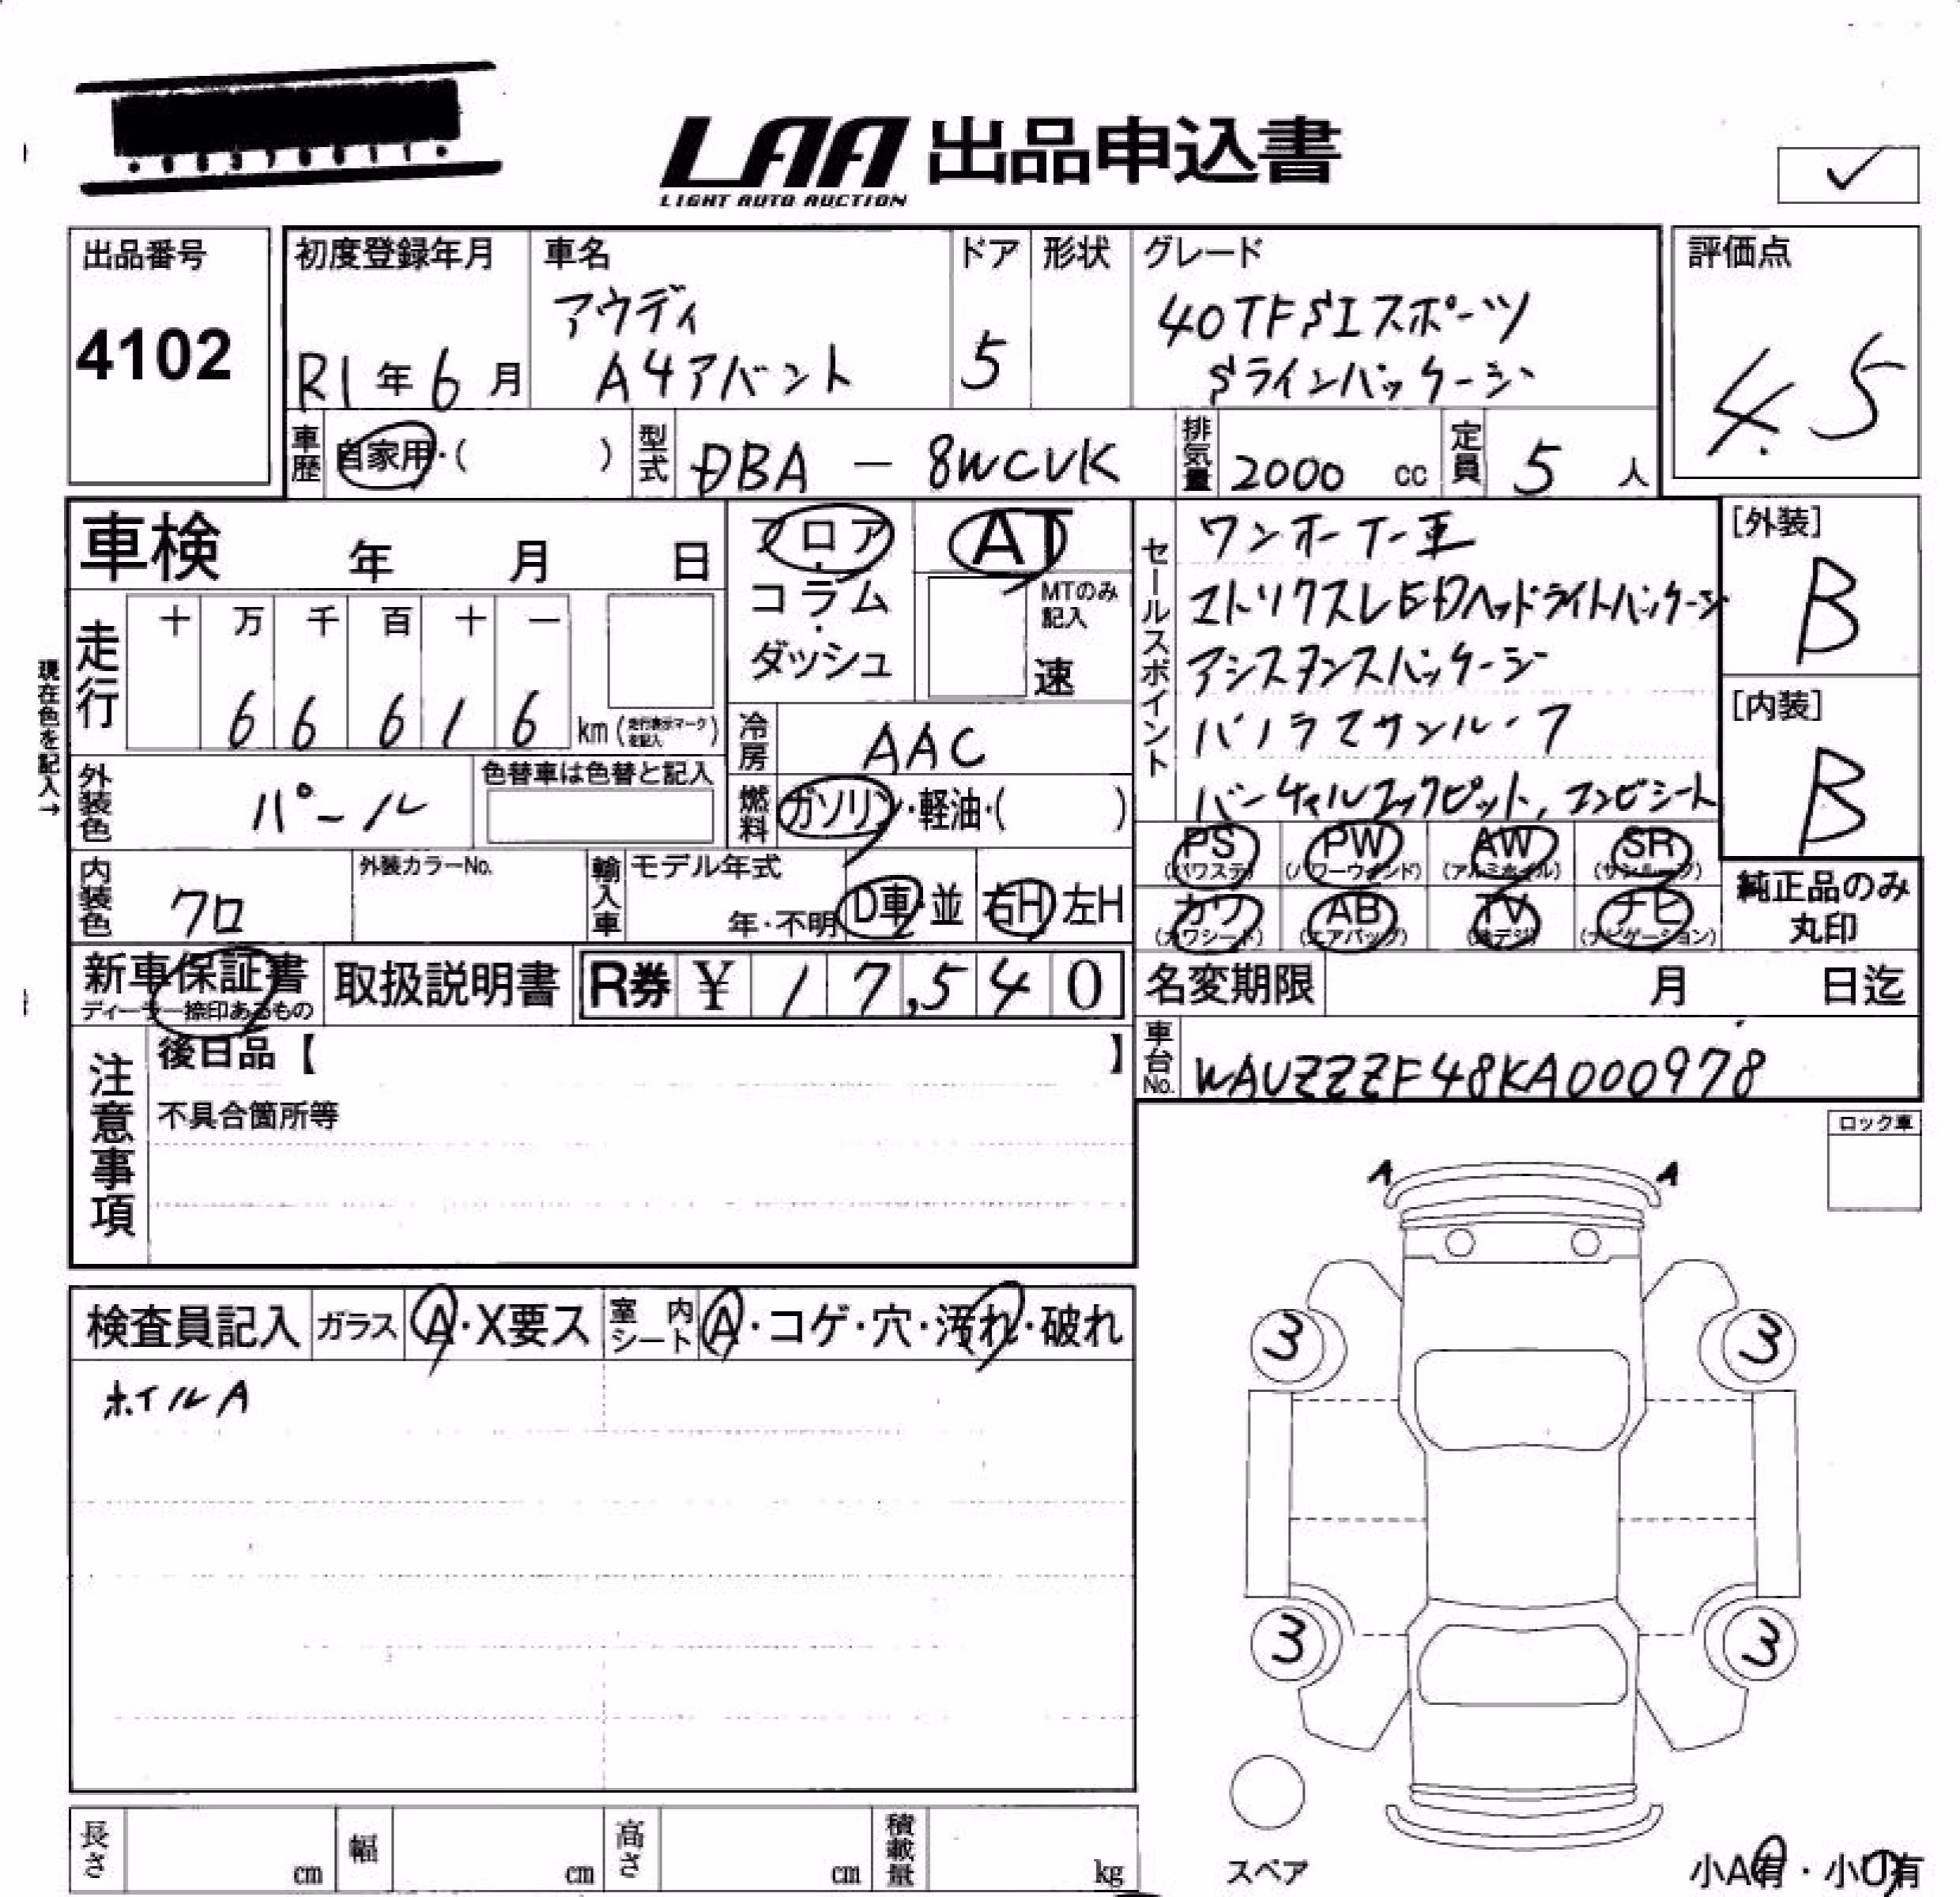 LAA 出品申込書
LIGHT AUTO AUCTION
✓
出品番号
4102
初度登録年月
R1年6月
車名
アウディ
A4アバント
ドア
5
形状
グレード
40TFSIスポーツ
Sラインパッケージ
評価点
4.5
車歴
自家用・( )
型式
DBA - 8WCVK
排気量
2000 cc
定員
5 人
車検 年 月 日
フロア・コラム・ダッシュ
AT
MTのみ記入
速
セールスポイント
ワンオーナー車
マトリクスLEDヘッドライトパッケージ
アシスタンスパッケージ
パノラマサンルーフ
バーチャルコックピット, コンビシート
[外装]
B
[内装]
B
現在色を記入→
走行
十 万 千 百 十 一
6 6 6 1 6 km (走行表示マークを記入)
冷房
AAC
外装色
パール
色替車は色替と記入
燃料
ガソリン・軽油・( )
PS (パワステ)
PW (パワーウインド)
AW (アルミホイル)
SR (サンルーフ)
カワ (カワシート)
AB (エアバッグ)
TV (地デジ)
ナビ (ナビゲーション)
純正品のみ
丸印
内装色
クロ
外装カラーNo.
輸入車
モデル年式
年・不明
D車・並
右H 左H
新車保証書
ディーラー捺印あるもの
取扱説明書
R券 ¥ 17,540
名変期限 月 日迄
車台No.
WAUZZZF48KA000978
注意事項
後日品【 】
不具合箇所等
ロック車
A A
検査員記入
ガラス
A・X要ス
室内シート
A・コゲ・穴・汚れ・破れ
ホイルA
3 3
3 3
長さ cm
幅 cm
高さ cm
積載量 kg
スペア
小A有・小U有